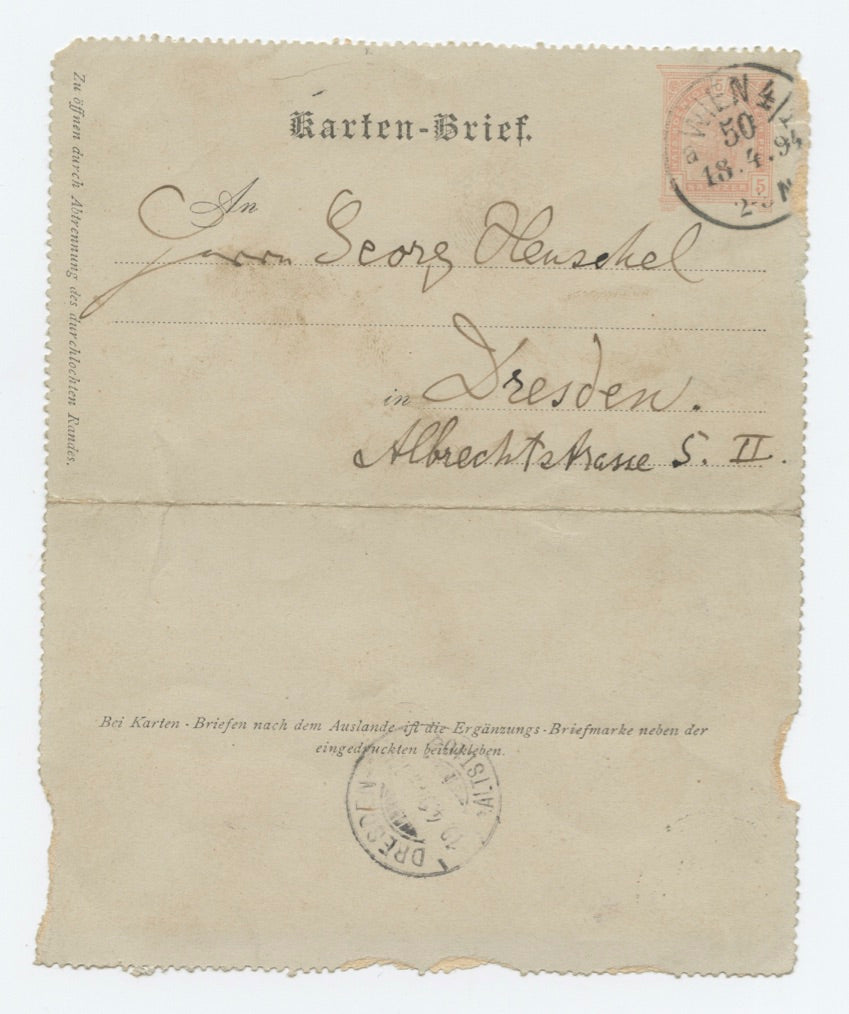 Karten-Brief.
WIEN 4/1
50
18.4.94
KREUZER
5
An
Herrn Georg Henschel
in Dresden.
Albrechtstrasse 5. II.
Zu öffnen durch Abtrennung des durchlochten Randes.
Bei Karten-Briefen nach dem Auslande ist die Ergänzungs-Briefmarke neben der
eingedruckten beizukleben.
DRESDEN-ALTST.